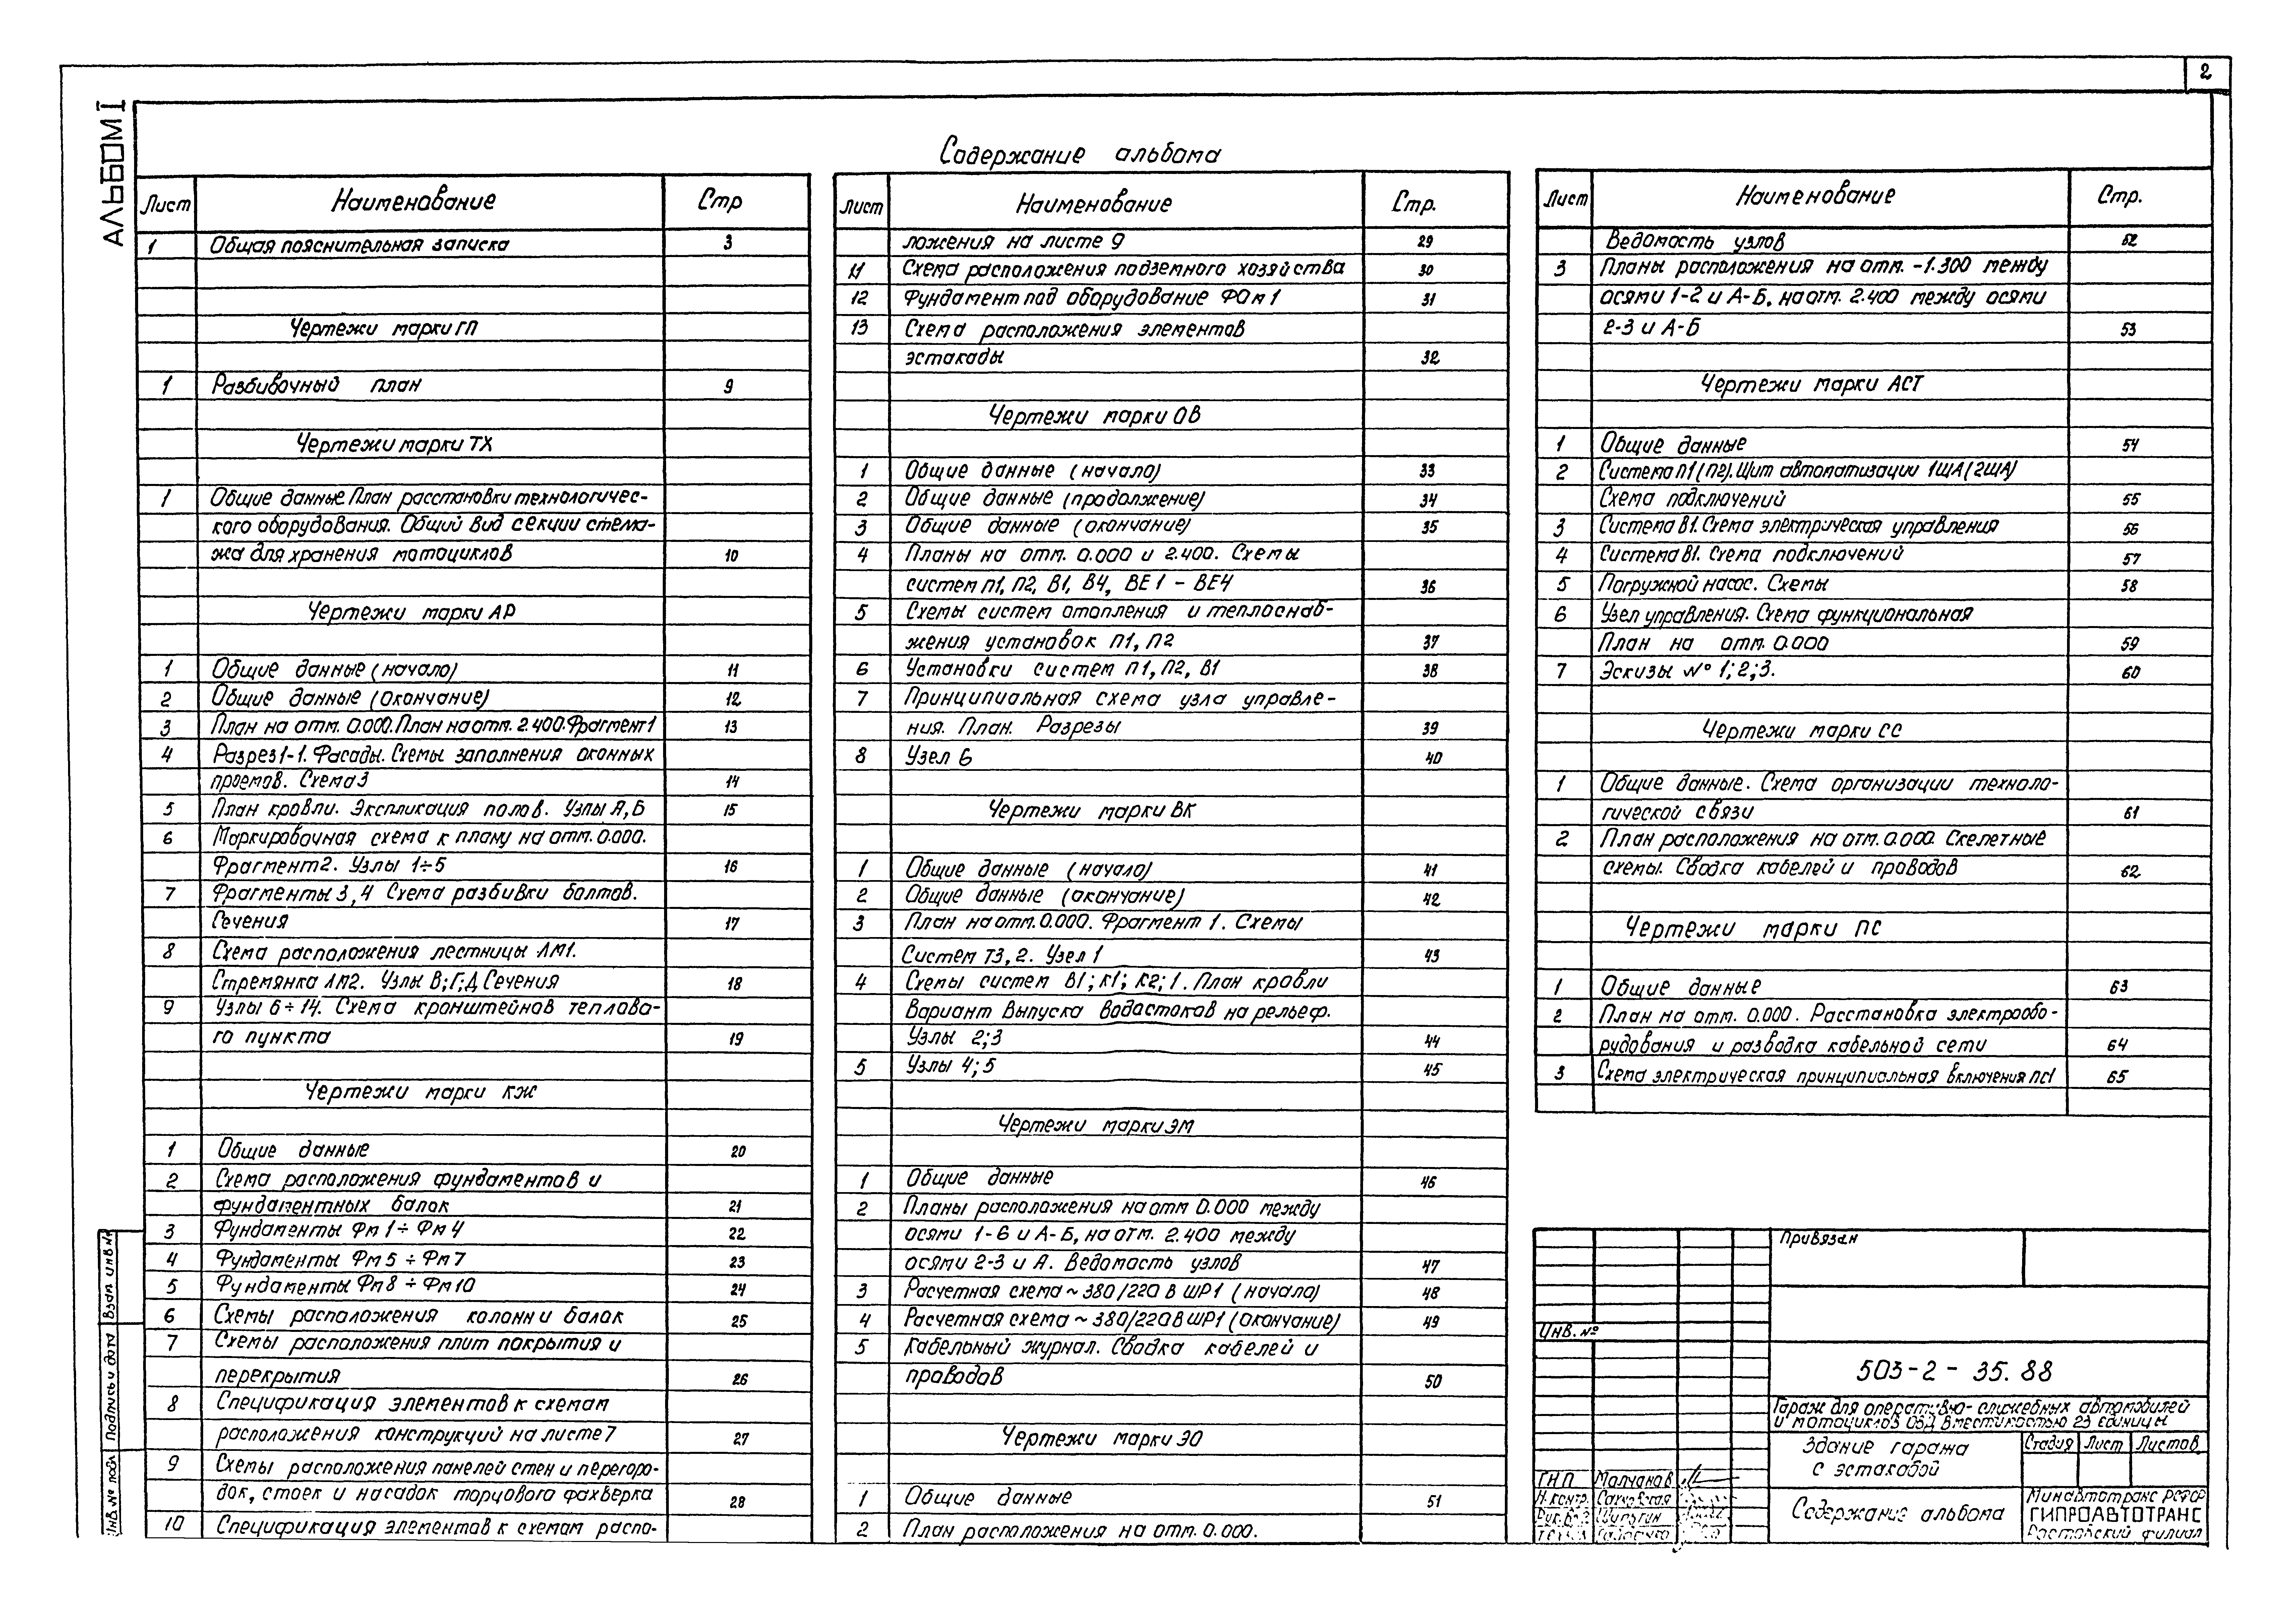 2
АЛЬБОМ I
Содержание альбома
Лист Наименование Стр
1 Общая пояснительная записка 3
Чертежи марки ГП
1 Разбивочный план 9
Чертежи марки ТХ
1 Общие данные План расстановки технологичес-
кого оборудования. Общий вид секции стелла-
жа для хранения мотоциклов 10
Чертежи марки АР
1 Общие данные (начало) 11
2 Общие данные (окончание) 12
3 План на отм. 0.000. План на отм. 2.400. Фрагмент 1 13
4 Разрез 1-1. Фасады. Схемы заполнения оконных
проемов. Схема 3 14
5 План кровли. Экспликация полов. Узлы А, Б 15
6 Маркировочная схема к плану на отм. 0.000.
Фрагмент 2. Узлы 1÷5 16
7 Фрагменты 3, 4 Схема разбивки болтов.
Сечения 17
8 Схема расположения лестницы ЛМ1.
Стремянка ЛМ2. Узлы В; Г; Д Сечения 18
9 Узлы 6÷14. Схема кронштейнов теплово-
го пункта 19
Чертежи марки КЖ
1 Общие данные 20
2 Схема расположения фундаментов и
фундаментных балок 21
3 Фундаменты Фм 1 ÷ Фм 4 22
4 Фундаменты Фм 5 ÷ Фм 7 23
5 Фундаменты Фм 8 ÷ Фм 10 24
6 Схемы расположения колонн и балок 25
7 Схемы расположения плит покрытия и
перекрытия 26
8 Спецификация элементов к схемам
расположения конструкций на листе 7 27
9 Схемы расположения панелей стен и перегоро-
док, стоек и насадок торцового фахверка 28
10 Спецификация элементов к схемам распо-
Лист Наименование Стр.
ложения на листе 9 29
11 Схема расположения подземного хозяйства 30
12 Фундамент под оборудование ФОм 1 31
13 Схема расположения элементов
эстакады 32
Чертежи марки ОВ
1 Общие данные (начало) 33
2 Общие данные (продолжение) 34
3 Общие данные (окончание) 35
4 Планы на отм. 0.000 и 2.400. Схемы
систем П1, П2, В1, В4, ВЕ 1 - ВЕ4 36
5 Схемы систем отопления и теплоснаб-
жения установок П1, П2 37
6 Установки систем П1, П2, В1 38
7 Принципиальная схема узла управле-
ния. План. Разрезы 39
8 Узел 6 40
Чертежи марки ВК
1 Общие данные (начало) 41
2 Общие данные (окончание) 42
3 План на отм. 0.000. Фрагмент 1. Схемы
Систем Т3, 2. Узел 1 43
4 Схемы систем В1; К1; К2; 1. План кровли
Вариант выпуска водостоков на рельеф.
Узлы 2; 3 44
5 Узлы 4; 5 45
Чертежи марки ЭМ
1 Общие данные 46
2 Планы расположения на отм 0.000 между
осями 1-6 и А-Б, на отм. 2.400 между
осями 2-3 и А. Ведомость узлов 47
3 Расчетная схема ~ 380/220 В ШР1 (начало) 48
4 Расчетная схема ~ 380/220 В ШР1 (окончание) 49
5 Кабельный журнал. Сводка кабелей и
проводов 50
Чертежи марки ЭО
1 Общие данные 51
2 План расположения на отм. 0.000.
Лист Наименование Стр.
Ведомость узлов 52
3 Планы расположения на отм. -1.300 между
осями 1-2 и А-Б, на отм. 2.400 между осями
2-3 и А-Б 53
Чертежи марки АСТ
1 Общие данные 54
2 Система П1 (П2). Щит автоматизации 1ЩА (2ЩА)
Схема подключений 55
3 Система В1. Схема электрическая управления 56
4 Система В1. Схема подключений 57
5 Погружной насос. Схемы 58
6 Узел управления. Схема функциональная
План на отм. 0.000 59
7 Эскизы № 1; 2; 3. 60
Чертежи марки СС
1 Общие данные. Схема организации техноло-
гической связи 61
2 План расположения на отм. 0.000. Скелетные
схемы. Сводка кабелей и проводов 62
Чертежи марки ПС
1 Общие данные 63
2 План на отм. 0.000. Расстановка электрообо-
рудования и разводка кабельной сети 64
3 Схема электрическая принципиальная включения ПС1 65
Привязан
Инв. №
503-2-35.88
Гараж для оперативно-служебных автомобилей
и мотоциклов ОВД вместимостью 23 единицы
Здание гаража
с эстакадой
Стадия Лист Листов
Содержание альбома
Минавтотранс РСФСР
ГИПРОАВТОТРАНС
Ростовский филиал
ГИП Молчанов
Н.контр.
Взам. инв. №
Подпись и дата
Инв. № подл